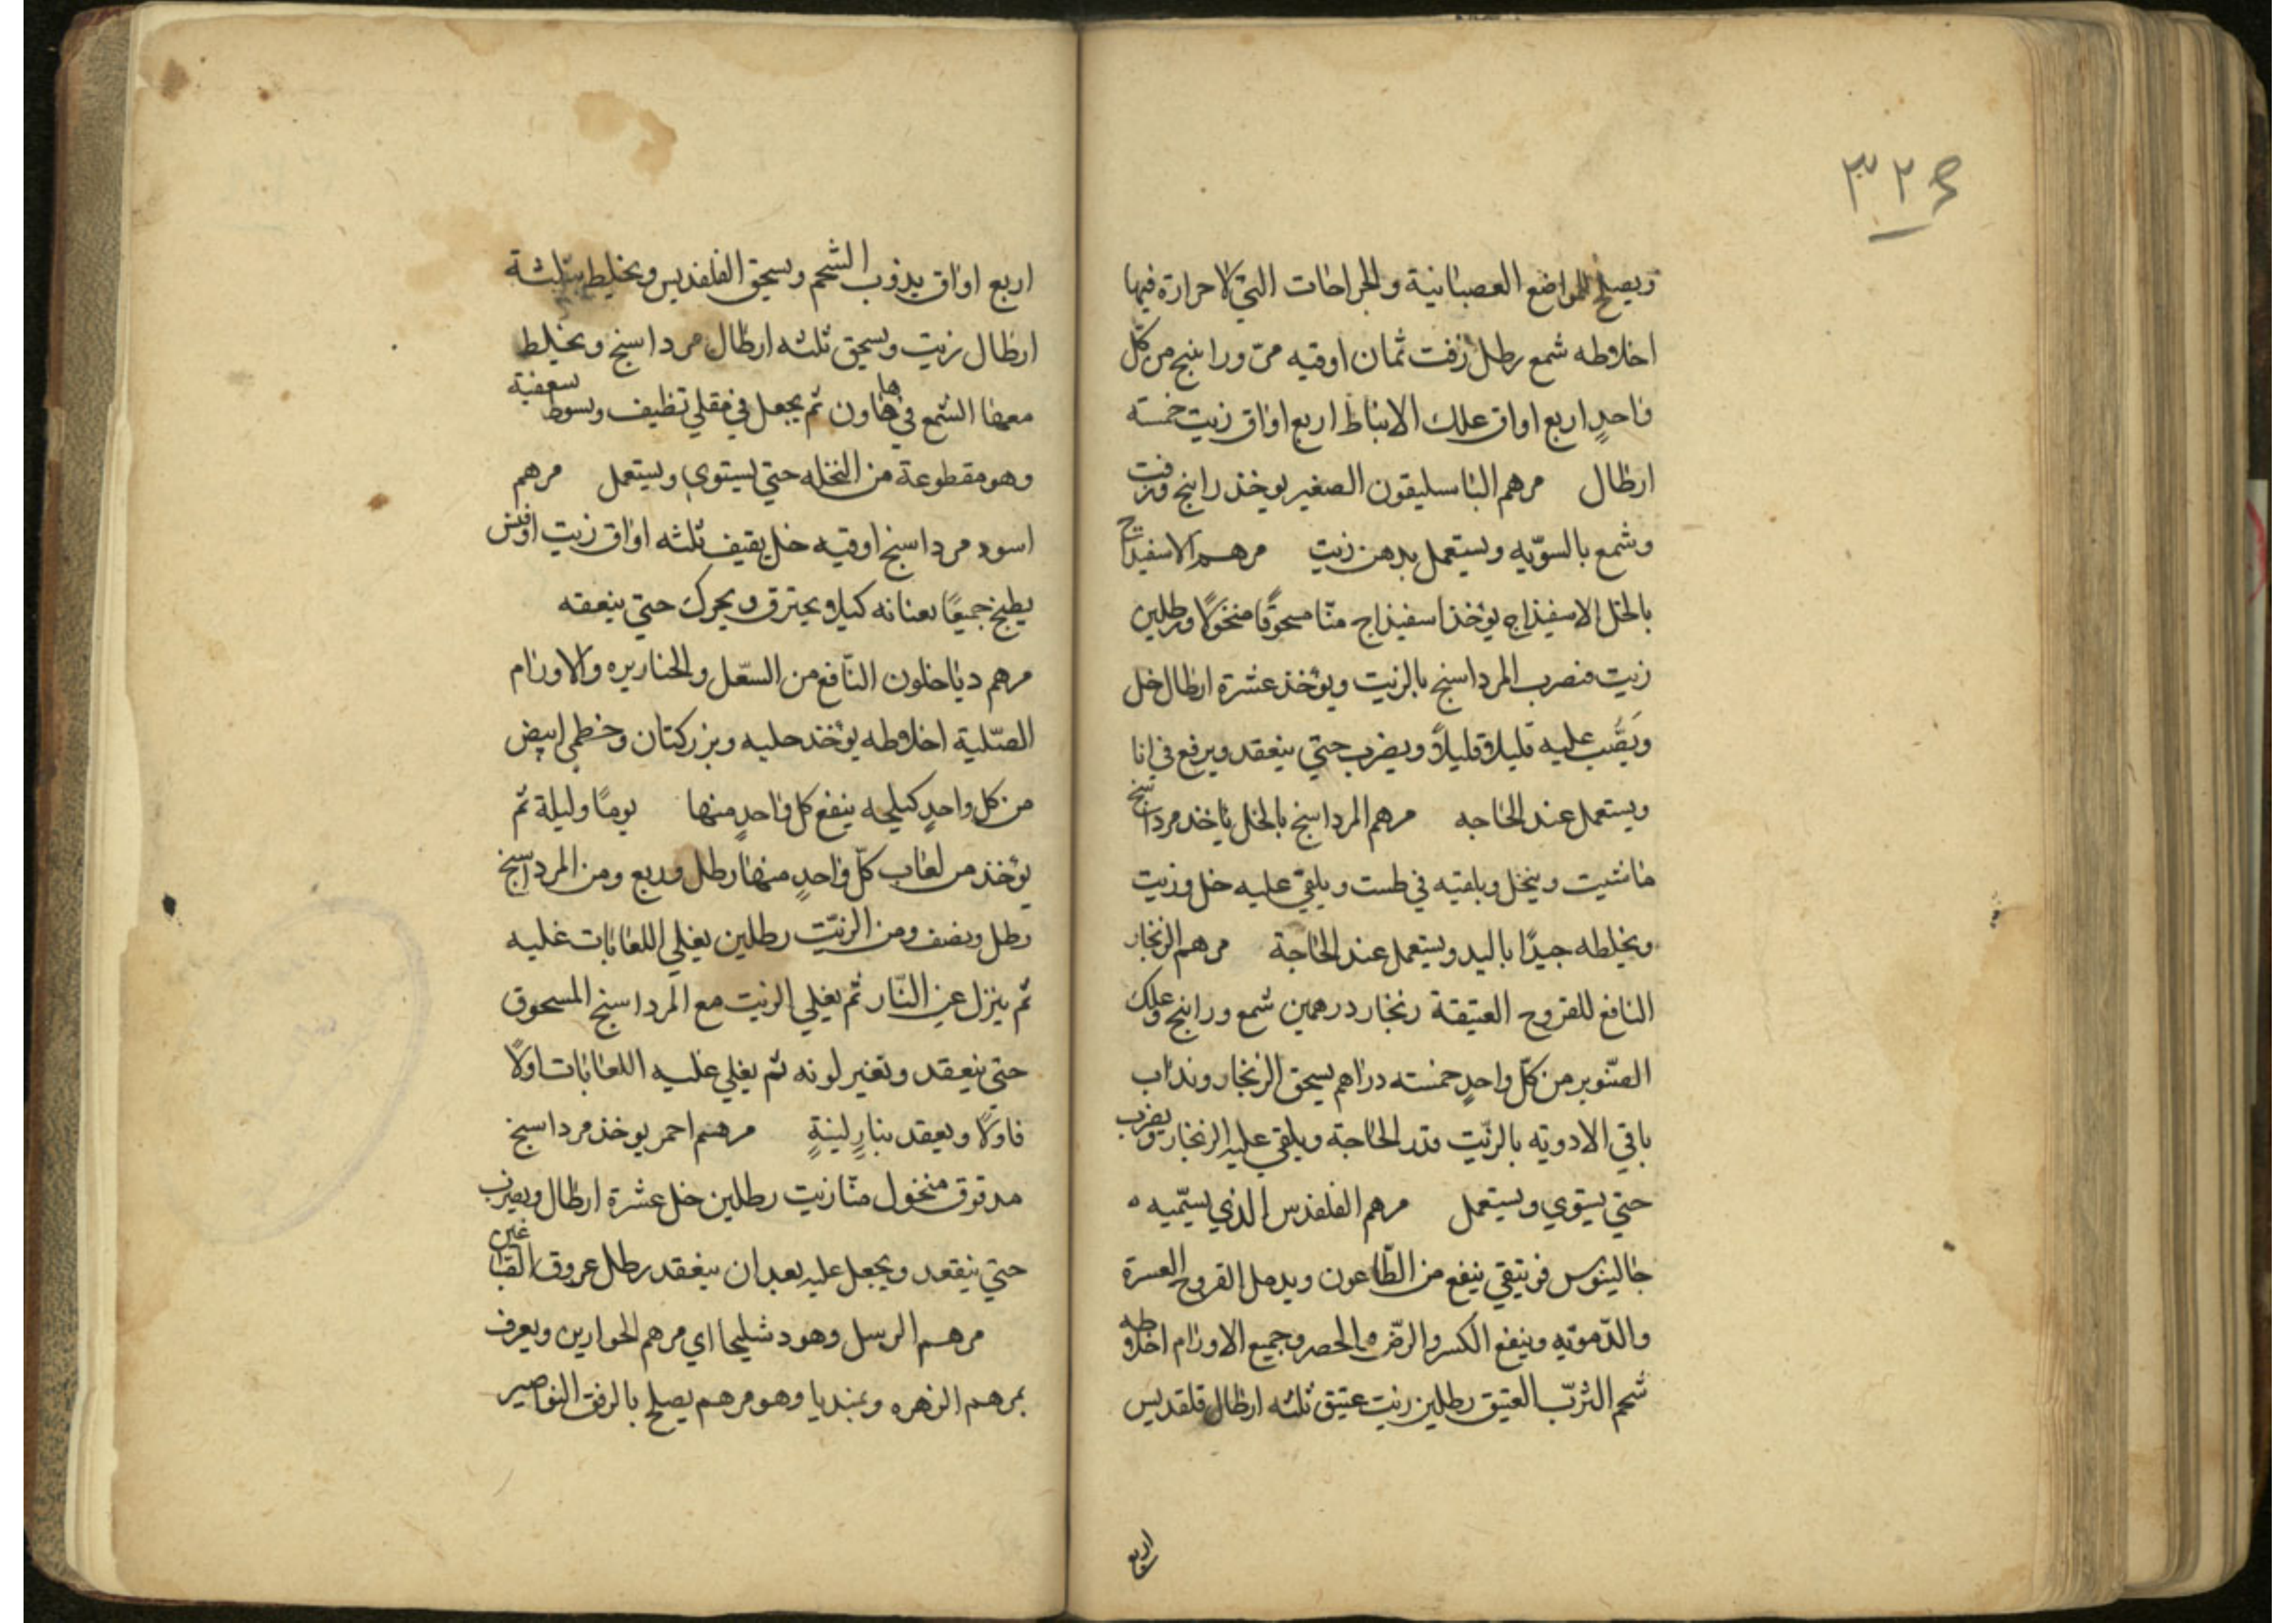 ٣٢٤
ويصلح للمواضع العصبانية والجراحات التي لا حرارة فيها
اخلاطه شمع رطل زفت ثمان اوقيه مر وراينج من كل
واحدٍ اربع اواق علك الانباط اربع اواق زيت خمسته
ارطال مرهم الباسليقون الصغير يوخذ راينج وزفت
وشمع بالسوّيه ويستعمل بدهن زيت مرهم الاسفيداج
بالخل الاسفيذاج يؤخذ اسفيذاج منّا مسحوقًا منخولًا ورطلين
زيت فيضرب المرداسنج بالزيت ويؤخذ عشرة ارطال خل
ويَصُّب عليه قليلاً قليلاً ويضرب حتي ينعقد ويرفع في انا
ويستعمل عند الحاجه مرهم المرداسنج بالخل ياخذ مرداسنج
ماشيت وينخل ويلقيه في طست ويلقي عليه خل وزيت
ويخلطه جيدًا باليد ويستعمل عند الحاجة مرهم الزنجار
النافع للقروح العتيقة زنجار درهمين شمع وراينج وعلك
الصّنوبر من كلّ واحدٍ خمسته دراهم يسحق الزنجار ويذاب
باقي الادويه بالزّيت قدر الحاجة ويلقي عليه الزنجار ويضرب
حتي يستوي ويستعمل مرهم القلقدس الذي يسّميه ه
جالينوس فونيقي ينفع من الطّاعون ويدمل القروح العسرة
والدّمويه وينفع الكسر والرضّ والحصر وجميع الاورام اخلاطه
شحم الثرّب العتيق رطلين زيت عتيق ثلثه ارطال قلقديس
اربع
اربع اواق يذوب الشحم ويسحق القلقديس ويخلط بثلثة
ارطال زيت ويسحق ثلثه ارطال مرداسنج ويخلط
معها الشمع في هاون ثم يجعل في مقلي نظيف ويسوط بسعفية
وهو مقطوعة من النخله حتي يستوي ويستعمل مرهم
اسود مرداسنج اوقيه خل ثقيف ثلثه اواق زيت
يطبخ جميعًا كيلا يحترق ويحرك حتي ينعقه
مرهم دياخلون النّافع من السّعل والخناريره والاورام
الصّلية اخلاطه يؤخذ حلبه وبزر كتان وخطمي ابيض
من كل واحدٍ كيلجه ينقع كل واحدٍ منها يومًا وليلة ثم
يؤخذ من لعاب كلّ واحدٍ منها رطل وربع ومن المرداسنج
رطل ونصف ومن الزيّت رطلين يغلي اللعابات غليه
ثم ينزل عن النّار ثم يغلي الزيت مع المرداسنج المسحوق
حتي ينعقد وتغير لونه ثم يغلي عليه اللعابات اولًا
فاولًا ويعقد بنارٍ لينةٍ مرهم احمر يوخذ مرداسنج
مدقوق منخول منّا زيت رطلين خل عشرة ارطال ويضرب
حتي ينقعد ويجعل عليه بعد ان ينعقد رطل عروق الصباغين
مرهم الرسل وهو دشليحا اي مرهم الحوارين ويعرف
بمرهم الزهره وبمنديا وهو مرهم يصلح بالرفق النواصير